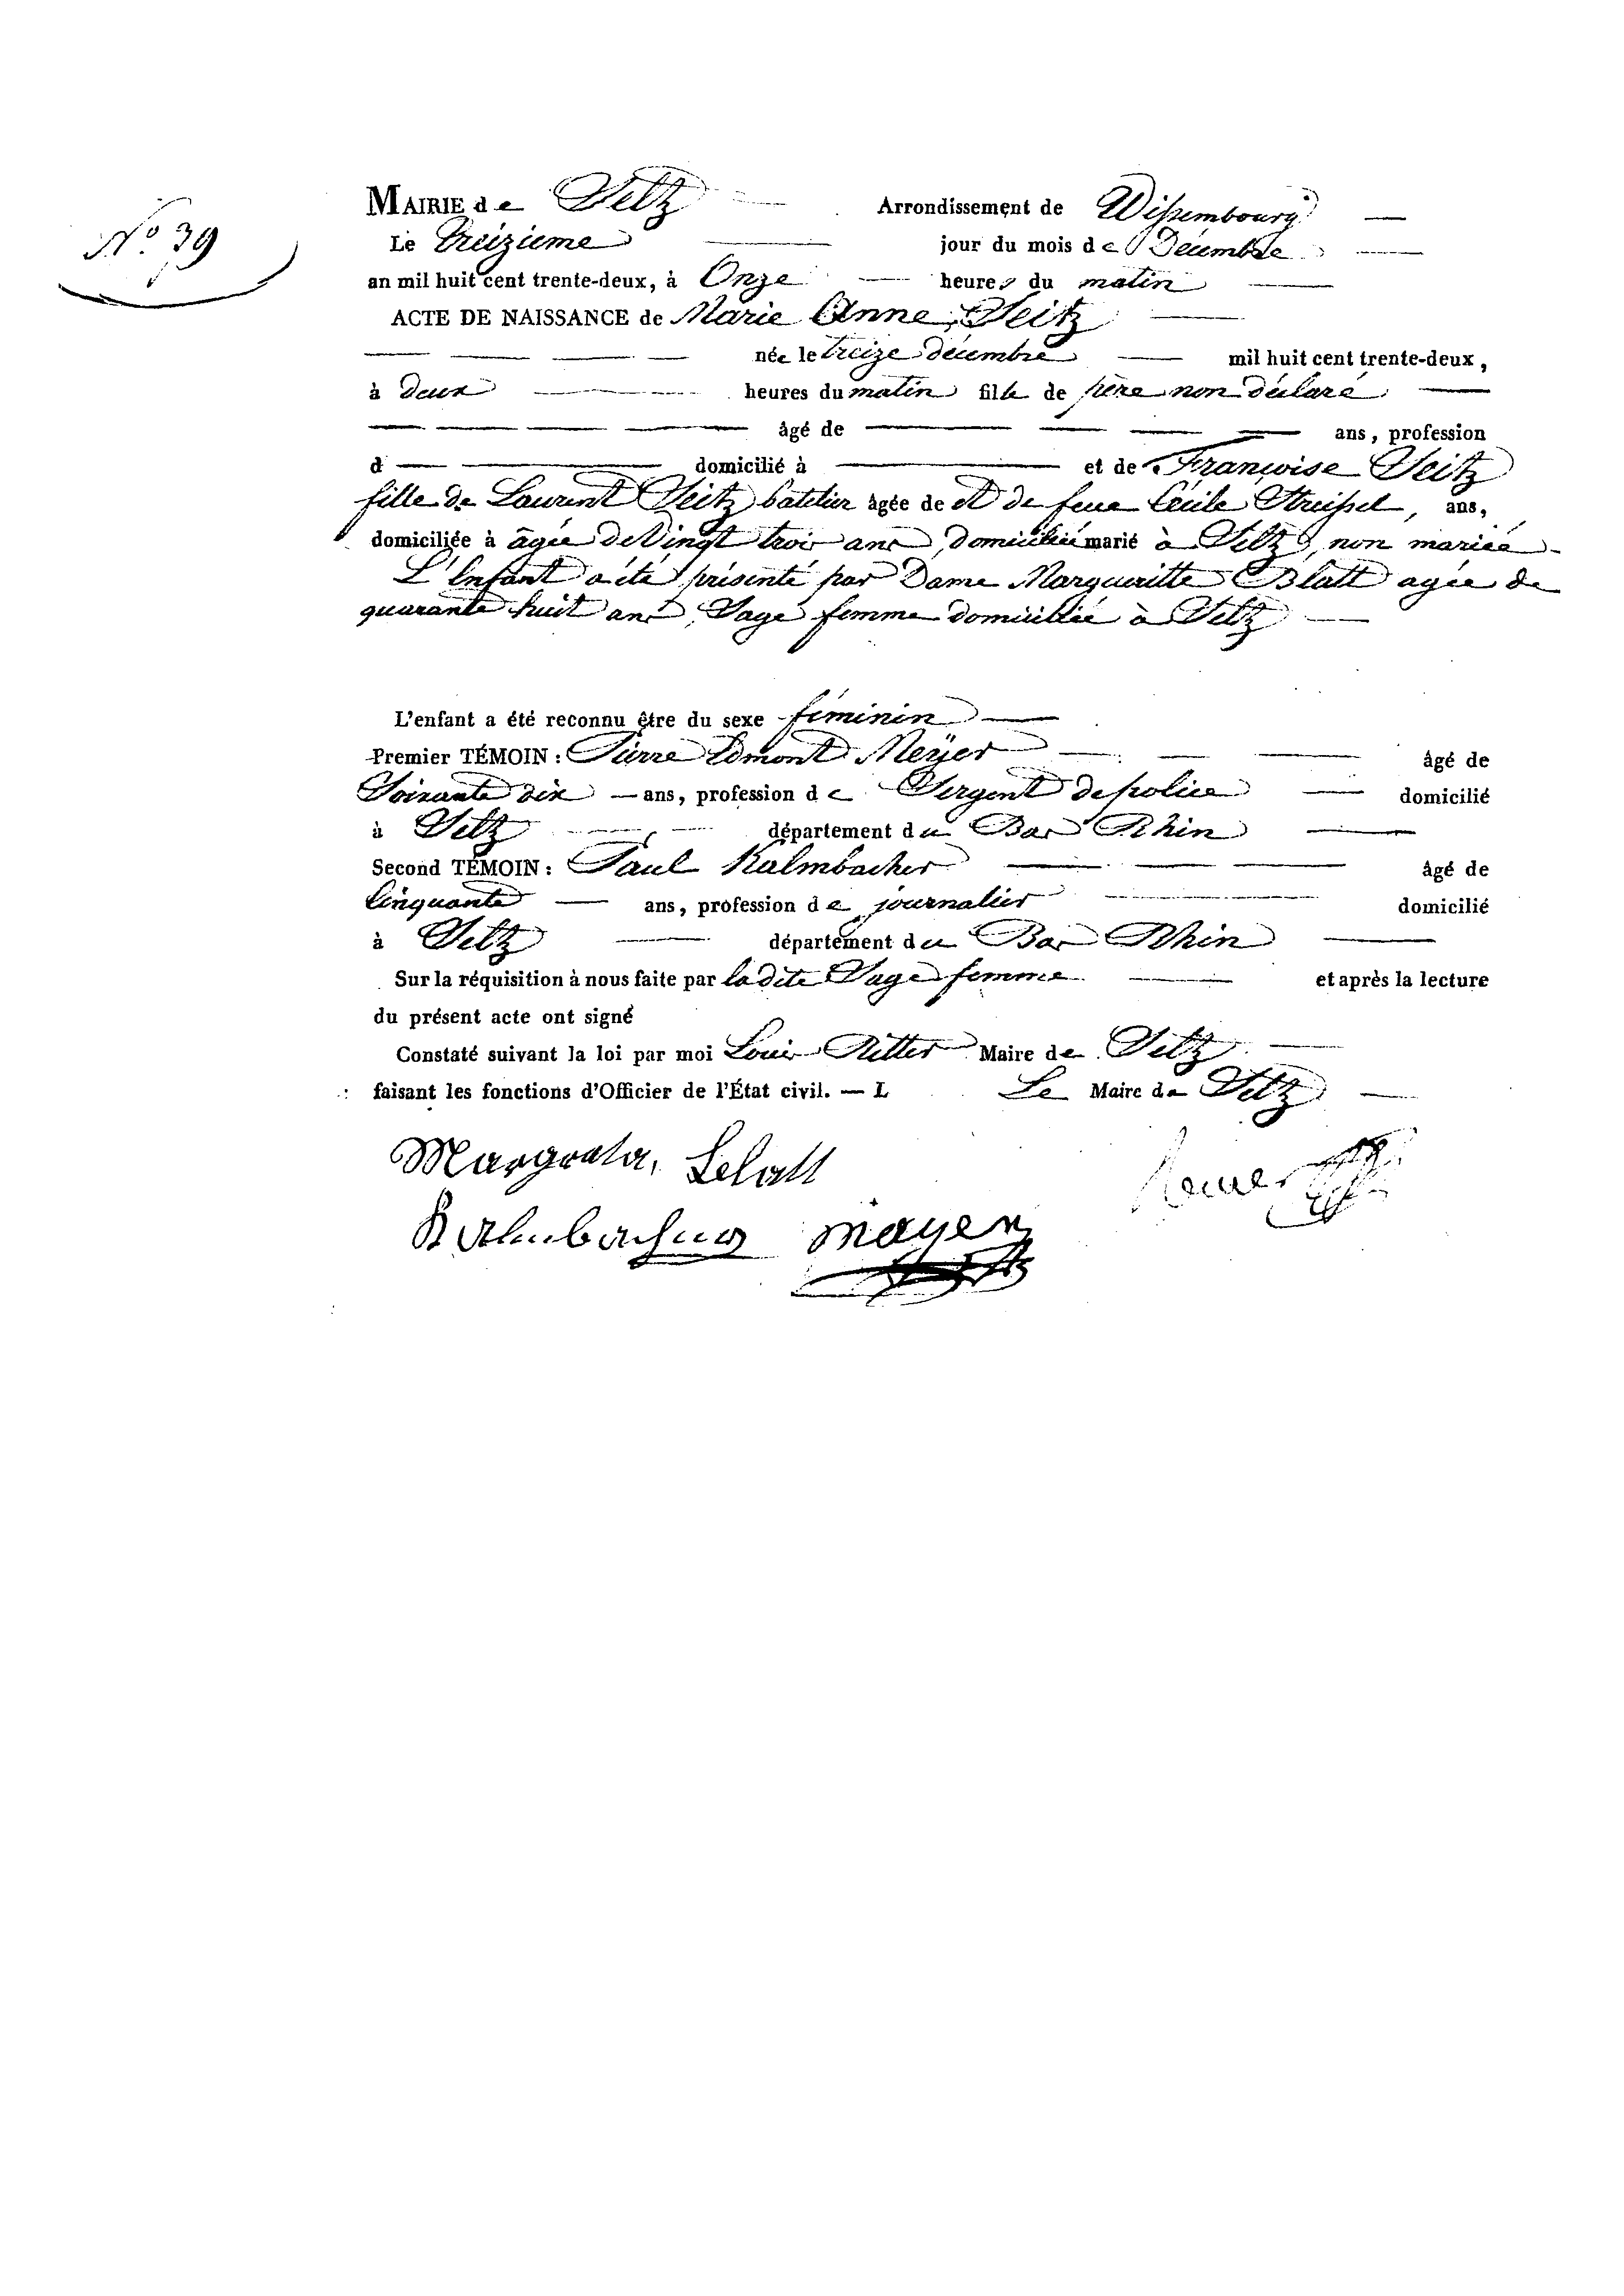 N° 39
MAIRIE de Seltz Arrondissement de Wissembourg
Le treizieme jour du mois de Décembre
an mil huit cent trente-deux, à Onze heures du matin
ACTE DE NAISSANCE de Marie Anne Seitz
née le treize décembre mil huit cent trente-deux,
à deux heures du matin fille de père non déclaré
âgé de ans, profession
d domicilié à et de Françoise Seitz
fille de Laurent Seitz batelier âgée de et de feue Cécile Streissel, ans,
domiciliée à âgée de Vingt trois ans, domiciliée marié à Seltz, non mariée
L'Enfant a été présenté par Dame Margueritte Blatt agée de
quarante huit ans, Sage femme domiciliée à Seltz
L'enfant a été reconnu être du sexe féminin
Premier TÉMOIN : Pierre Edmont Meÿer âgé de
Soixante dix ans, profession de Sergent de police domicilié
à Seltz département du Bas Rhin
Second TÉMOIN : Paul Kalmbacher âgé de
Cinquante ans, profession de journalier domicilié
à Seltz département du Bas Rhin
Sur la réquisition à nous faite par ladite Sage femme et après la lecture
du présent acte ont signé
Constaté suivant la loi par moi Louis Ritter Maire de Seltz
faisant les fonctions d'Officier de l'État civil. — L Le Maire de Seltz
Margreta,
Kalmbacher mayer